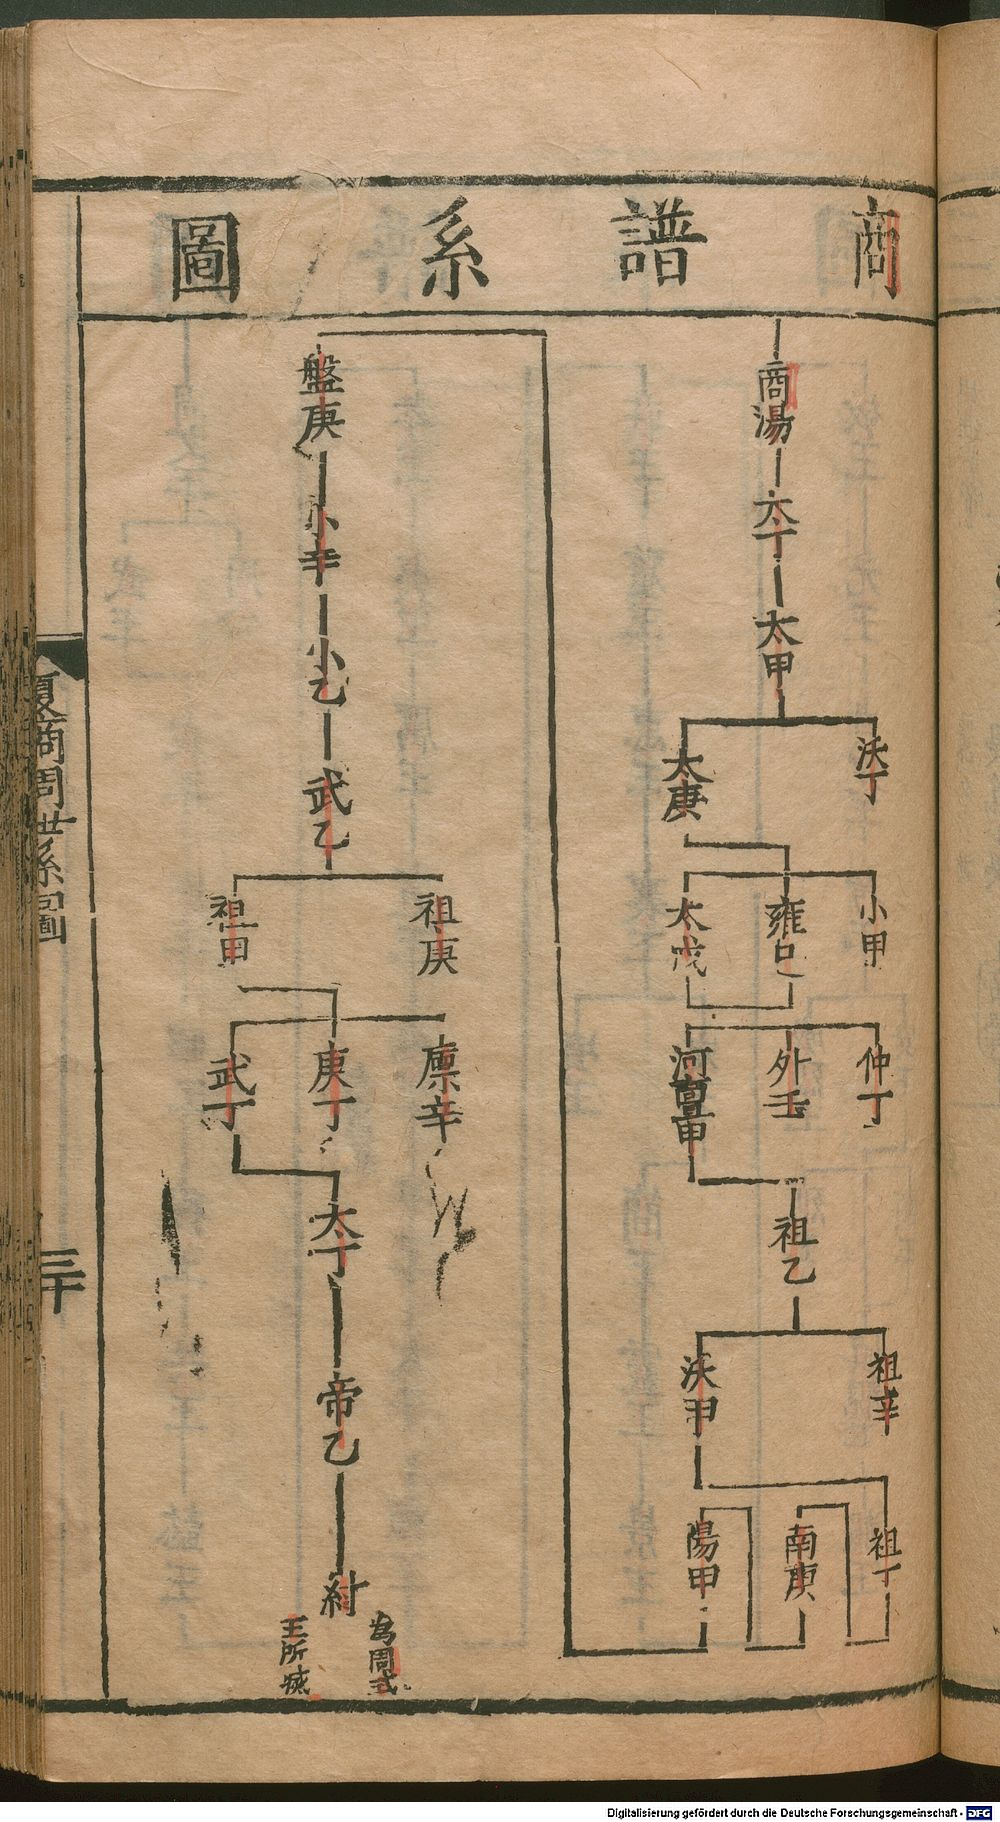 商譜系圖
商湯
太丁
太甲
沃丁
太庚
小甲
雍己
太戊
仲丁
外壬
河亶甲
祖乙
祖辛
沃甲
祖丁
南庚
陽甲
盤庚
小辛
小乙
武乙
祖庚
祖甲
廪辛
庚丁
武丁
太丁
帝乙
紂
為周武
王所滅
夏商周世系圖
三十
Digitalisierung gefördert durch die Deutsche Forschungsgemeinschaft - DFG